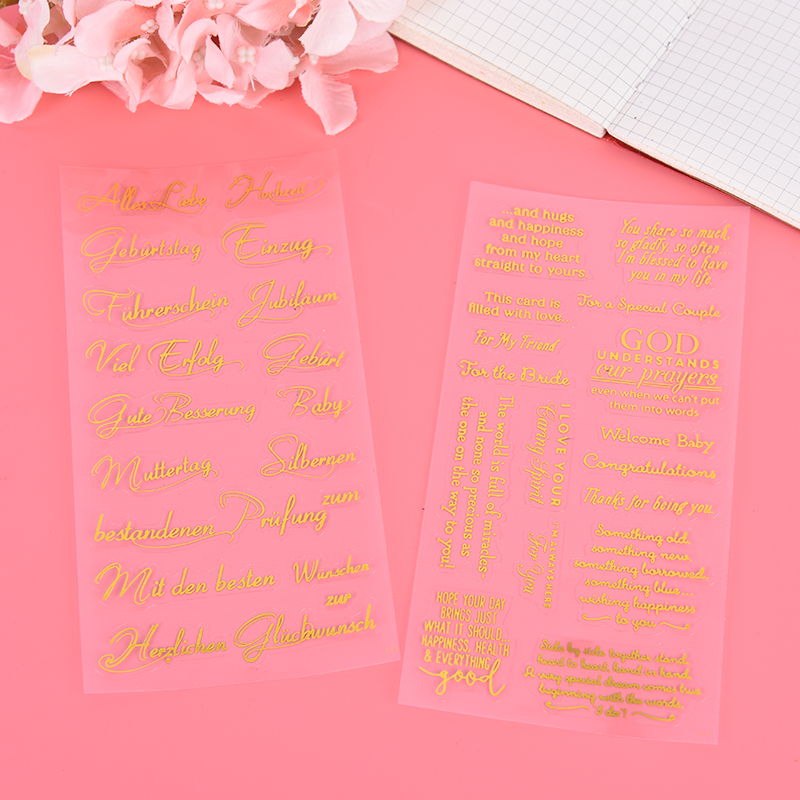 Alles Liebe
Hochzeit
Geburtstag
Einzug
Führerschein
Jubiläum
Viel Erfolg
Geburt
Gute Besserung
Baby
Muttertag
Silbernen
zum
bestandenen Prüfung
Mit den besten
Wünschen
zur
Herzlichen Glückwunsch
...and hugs
and happiness
and hope
from my heart
straight to yours.
You share so much,
so gladly, so often.
I'm blessed to have
you in my life.
This card is
filled with love...
For a Special Couple
For My Friend
For the Bride
GOD
UNDERSTANDS
our prayers
even when we can't put
them into words
The world is full of miracles-
and none so precious as
the one on the way to you!
I LOVE YOUR
Caring Spirit
I'M ALWAYS HERE
For You
Welcome Baby
Congratulations
Thanks for being you.
Something old,
something new,
something borrowed,
something blue...
wishing happiness
to you
HOPE YOUR DAY
BRINGS JUST
WHAT IT SHOULD...
HAPPINESS, HEALTH
& EVERYTHING
good
Side by side, together stand,
heart to heart, hand in hand.
A very special dream comes true
beginning with the words,
I do!